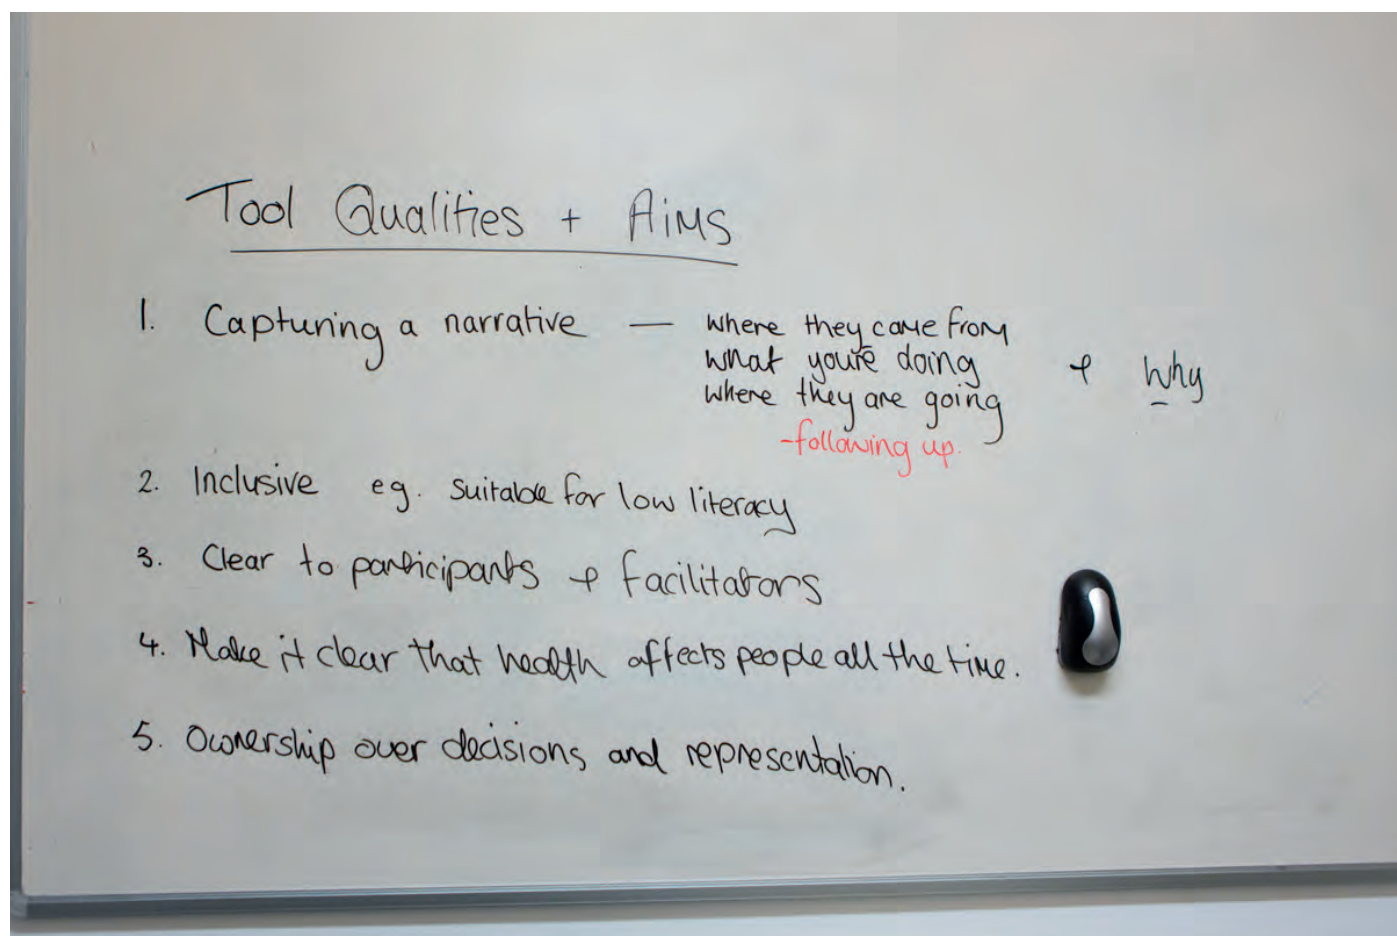 Tool Qualities + Aims
1. Capturing a narrative — where they came from
what you're doing + why
where they are going
-following up.
2. Inclusive eg. suitable for low literacy
3. Clear to participants + facilitators
4. Make it clear that health affects people all the time.
5. Ownership over decisions and representation.